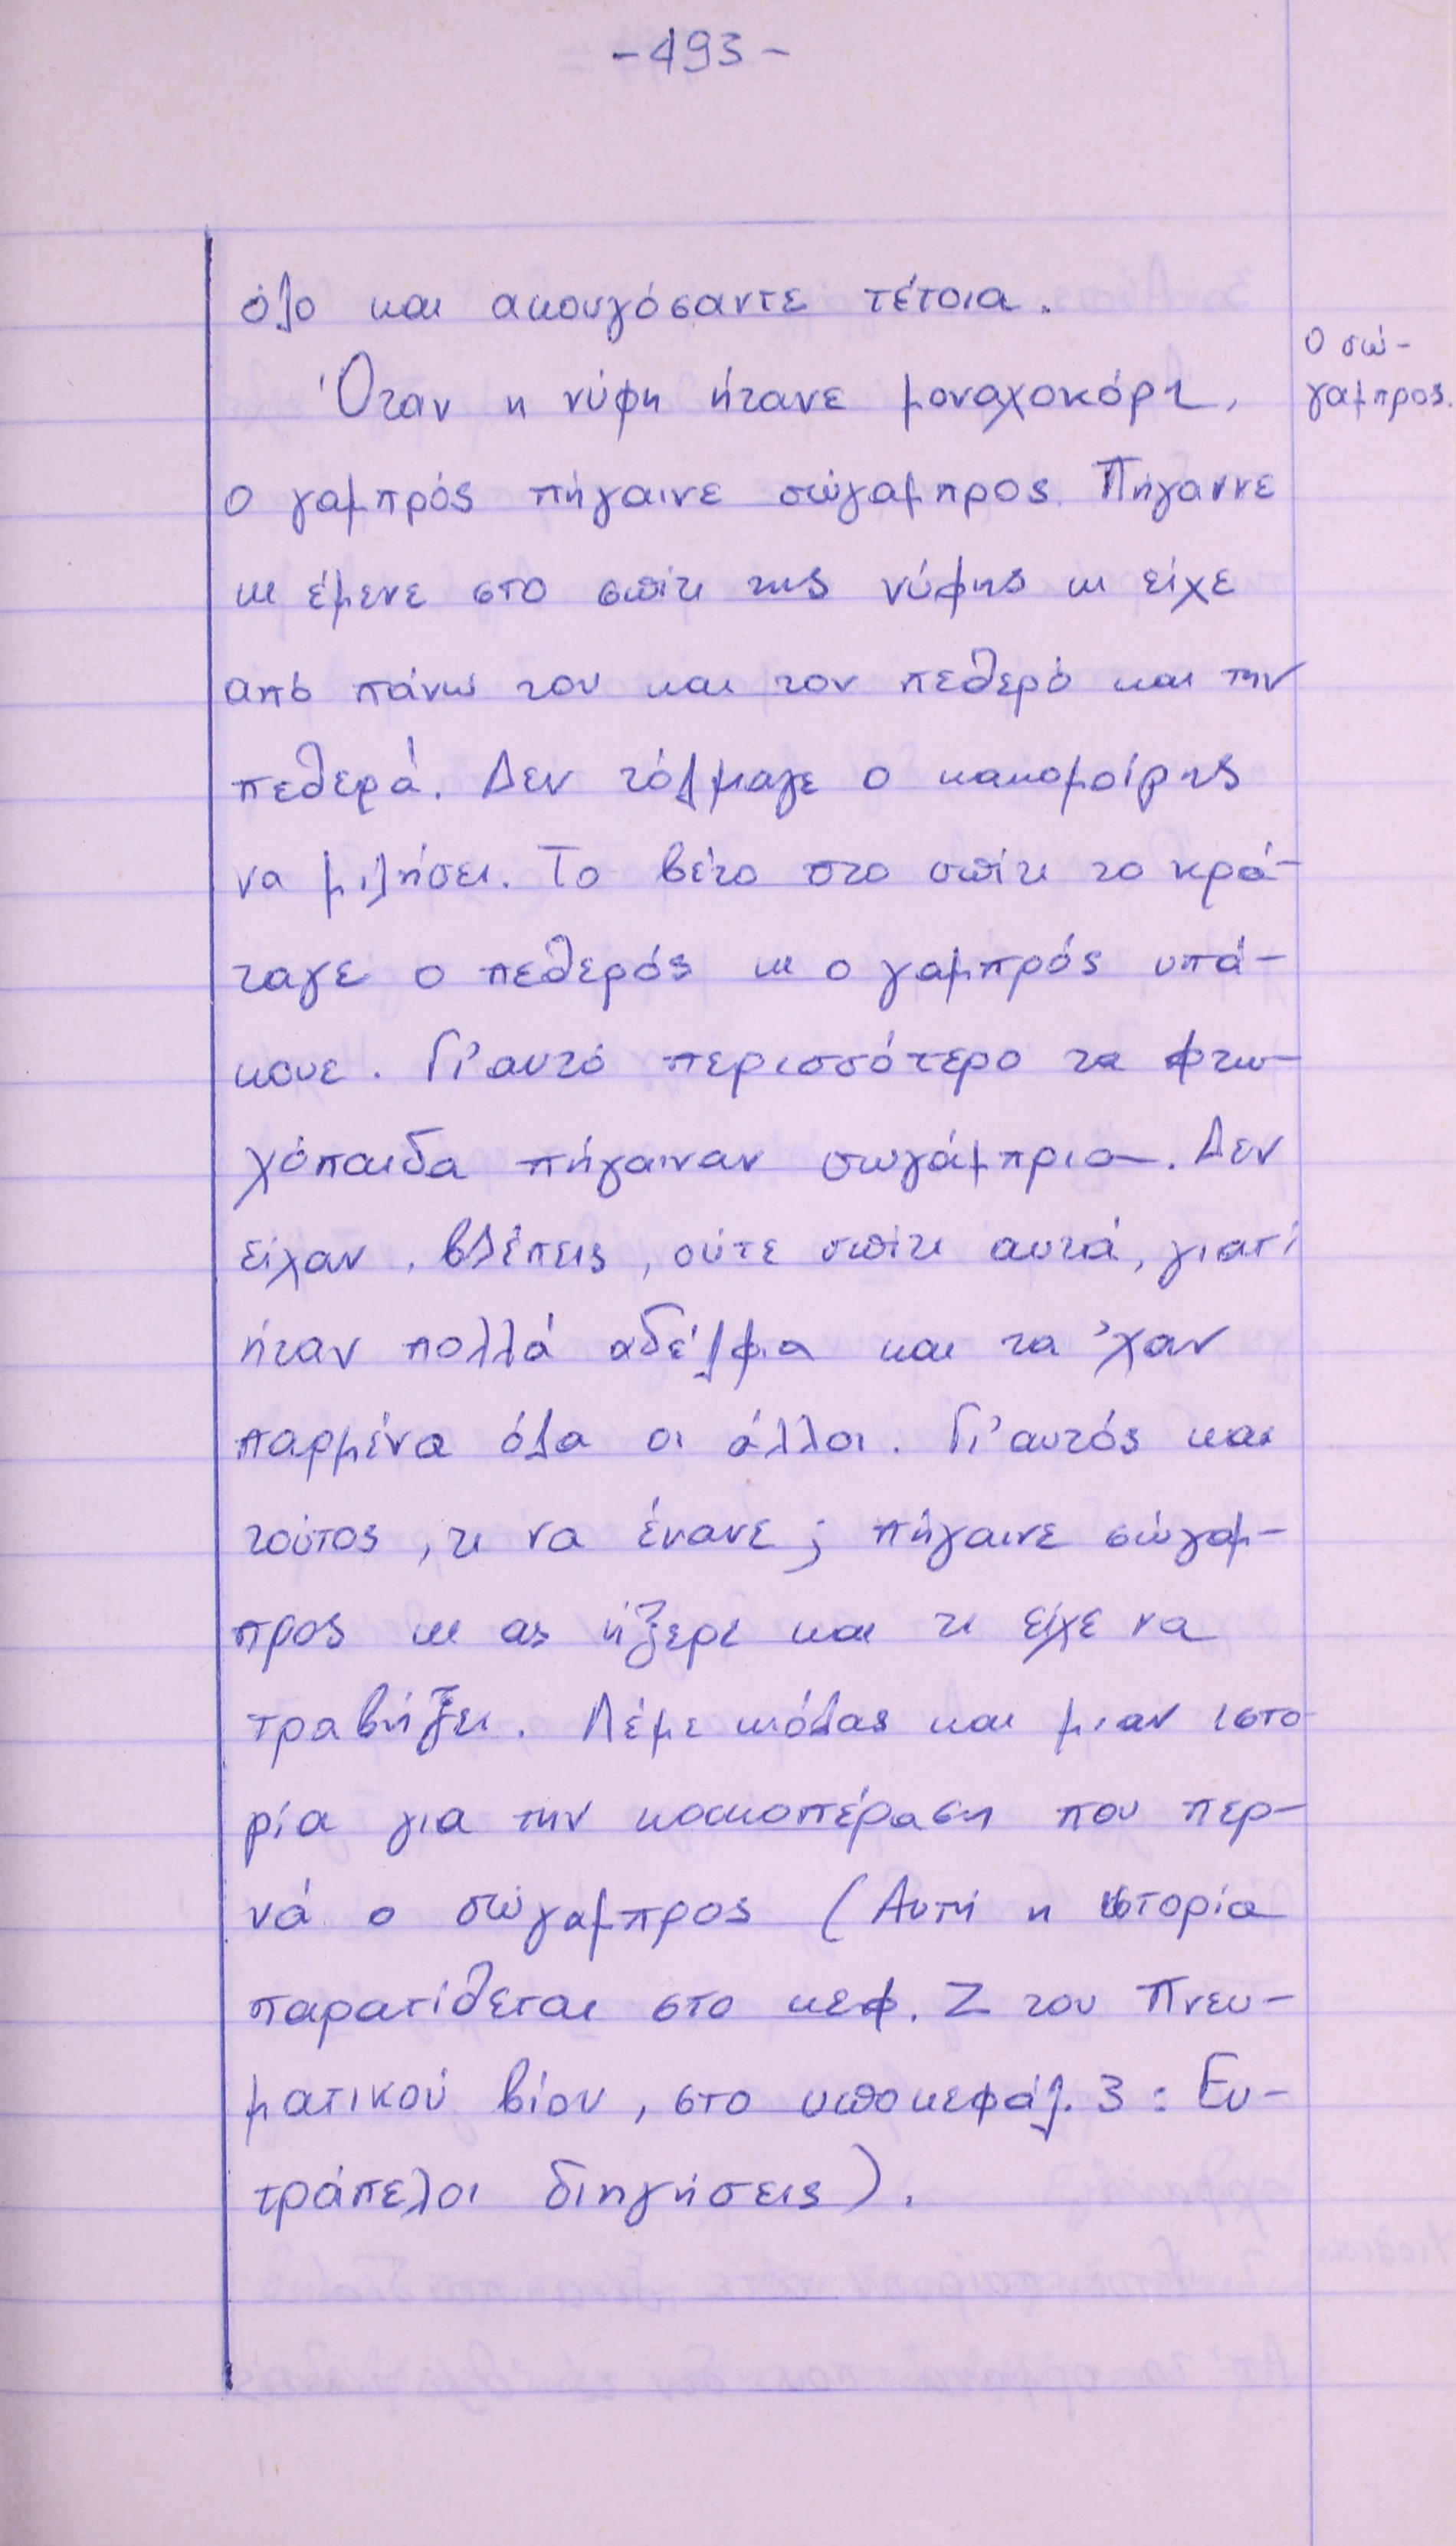 -493-
όλο και ακουγόσαντε τέτοια.
Όταν η νύφη ήτανε μοναχοκόρη,
Ο σώ-
γαμπρος.
ο γαμπρός πήγαινε σώγαμπρος. Πήγαινε
κι έμενε στο σπίτι της νύφης κι είχε
από πάνω του και τον πεθερό και την
πεθερά. Δεν τόλμαγε ο κακομοίρης
να μιλήσει. Το βέτο στο σπίτι το κρά-
ταγε ο πεθερός κι ο γαμπρός υπά-
κουε. Γι' αυτό περισσότερο τα φτω-
χόπαιδα πήγαιναν σωγάμπρια. Δεν
είχαν, βλέπεις, ούτε σπίτι αυτά, γιατί
ήταν πολλά αδέλφια και τα 'χαν
παρμένα όλα οι άλλοι. Γι' αυτός και
τούτος, τι να έκανε; πήγαινε σώγαμ-
προς κι ας ήξερε και τι είχε να
τραβήξει. Λέμε κιόλας και μιαν ιστο-
ρία για την κακοπέραση που περ-
νά ο σώγαμπρος (Αυτή η ιστορία
παρατίθεται στο κεφ. Ζ του Πνευ-
ματικού βίου, στο υποκεφάλ. 3: Ευ-
τράπελοι διηγήσεις).